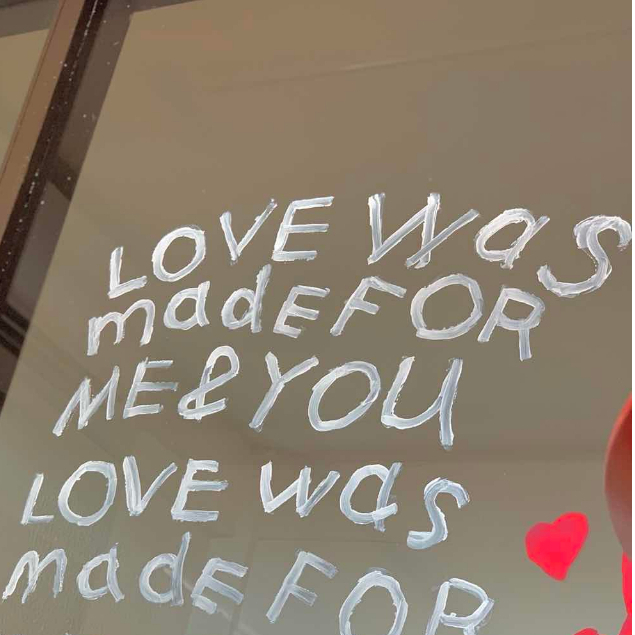 LOVE Was
madE FOR
ME & YOU
LOVE was
madE FOR